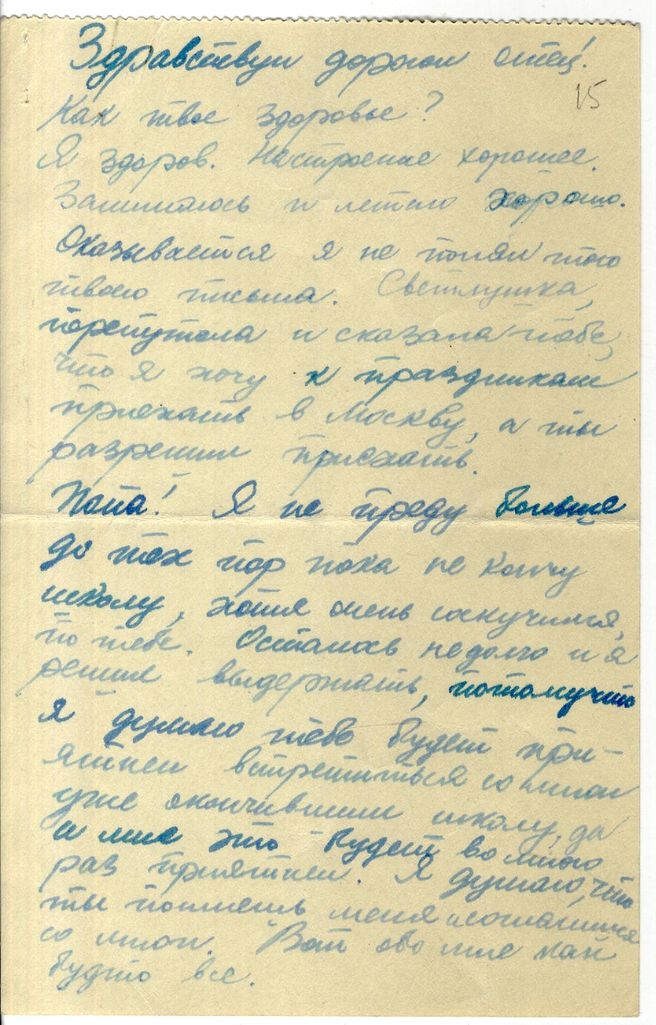 Здравствуй дорогой отец!
15
Как твое здоровье?
Я здоров. Настроение хорошее.
Занимаюсь и летаю хорошо.
Оказывается я не понял того
твоего письма. Светлушка,
перепутала и сказала тебе,
что я хочу к праздникам
приехать в Москву, а ты
разрешил приехать.
Папа! Я не преду больше
до тех пор пока не кончу
школу, хотя очень соскучился,
по тебе. Осталось недолго и я
решил выдержать, потомучто
я думаю тебе будет при-
ятней встретиться со мной
уже окончившим школу, да
и мне это будет во много
раз приятней. Я думаю, что
ты поймешь меня и согласишся
со мной. Вот обо мне как
будто все.